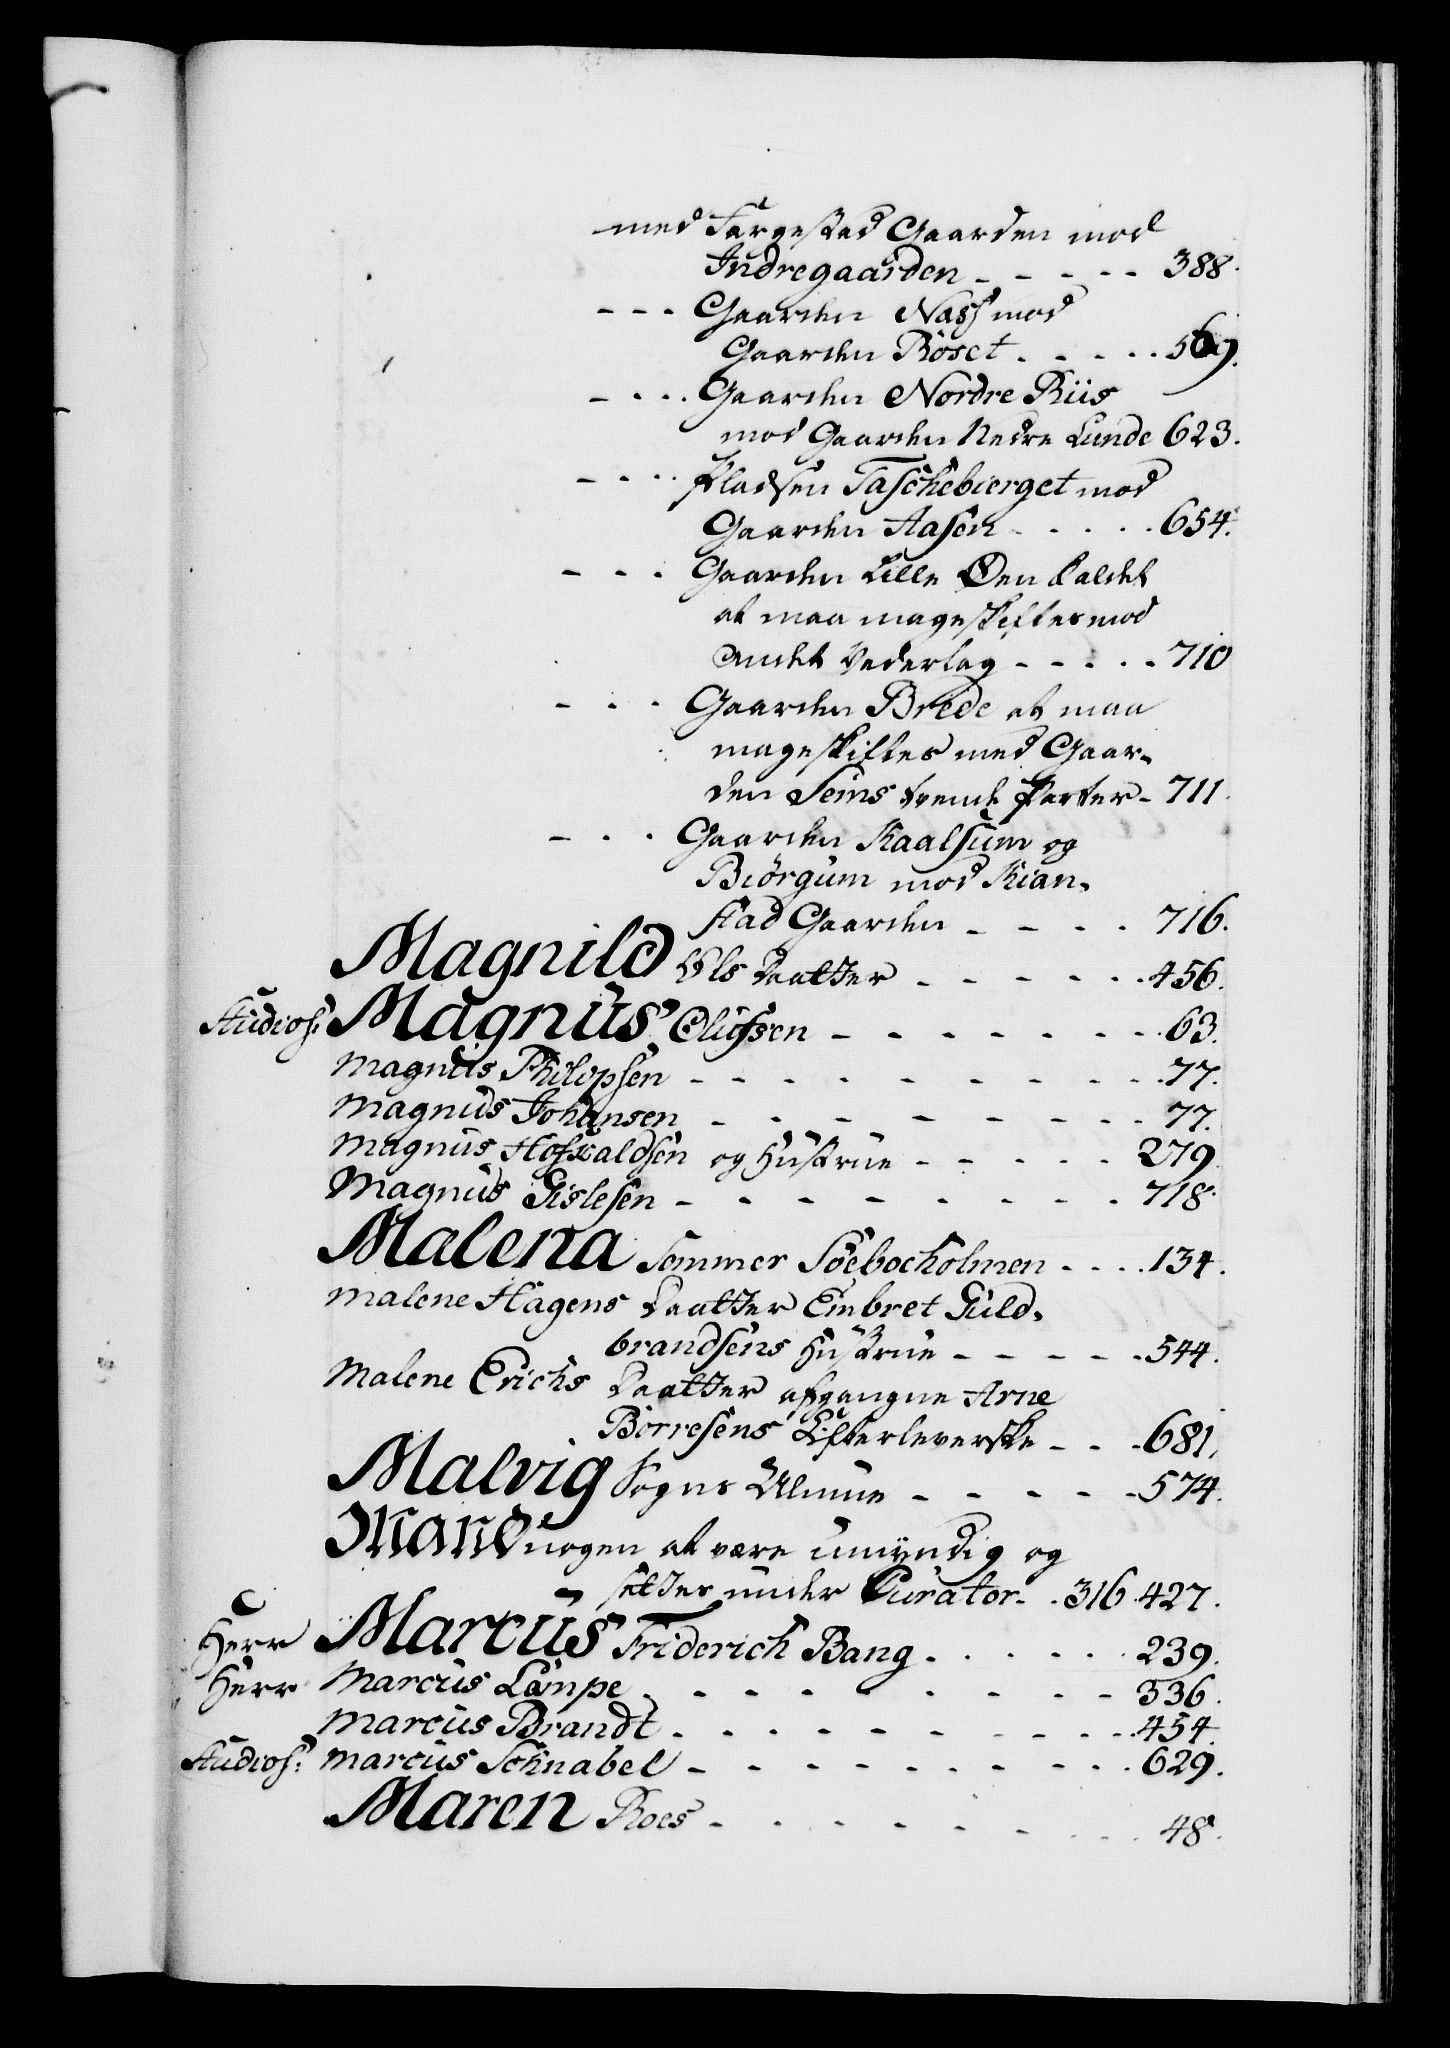 med Fargestad Gaarden mod
Indregaarden - - - - - 388.
- - - Gaarden Næss mod
Gaarden Röset . - - - . 569.
- - - . Gaarden Nordre Riis
mod Gaarden Nedre Lunde 623.
- - - . Pladsen Taschebierget mod
Gaarden Aasen - - - - . 654.
- - . Gaarden Lille Øen kaldet
at maa mageskiftes mod
andet Vederlag - - - - . 710
- - . Gaarden Brede at maa
mageskiftes med Gaar-
den Seims tvende Parter - 711.
- - . Gaarden Kaalsum og
Biörgum mod Kian-
stad Gaarden - - - . 716.
Magnild Ols Daatter - - - - - . 456.
Studios: Magnus Olufsen - - - - - - - . 63.
Magnus Philipsen - - - - - - - - . 77.
Magnus Johansen - - - - - - - - 77.
Magnus Hofvaldsen og Hustrue - - - - - 279.
Magnus Gislesen - - - - - - - - . 718.
Malena Sommer Söeboeholmen - - - . 134.
Malene Hagens Daatter Embret Guld-
brandsens Hustrue - - - - - 544.
Malene Erichs Daatter afgangne Arne
Börresens Efterleverske - - - 681.
Malvig Sogns Almue - - - - - 574.
Mand nogen at være umyndig og
settes under Curator - . 316. 427.
Herr Marcus Friderich Bang . - - - - . 239.
Herr Marcus Lampe . - - - - - - - 336.
Marcus Brandt . - - - - - - - - 454.
Studios: Marcus Schnabel - - - - - - - - . 629.
Maren Roes - - - - - - - . 48.